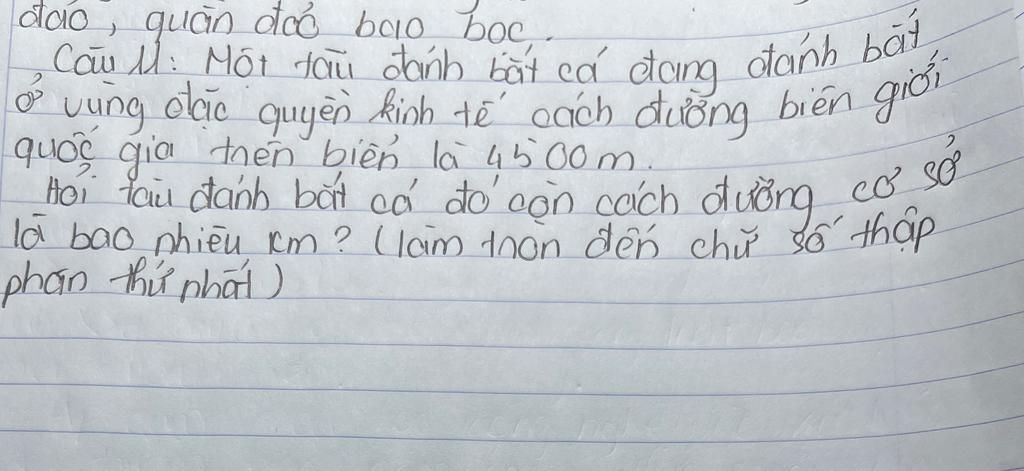 đảo, quần đảo bao bọc.
Câu 11: Một tàu đánh bắt cá đang đánh bắt
ở vùng đặc quyền kinh tế cách đường biên giới
quốc gia trên biển là 4500m.
Hỏi tàu đánh bắt cá đó còn cách đường cơ sở
là bao nhiêu km? (làm tròn đến chữ số thập
phân thứ nhất)